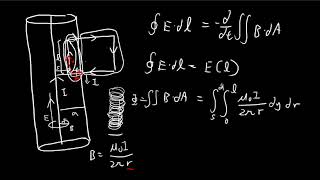 ∮ E·dl = -d/dt ∬ B·dA
∮ E·dl = E(l)
∬ B·dA = ∫ₛ ∫₀ˡ μ₀I/2πr dy dr
B = μ₀I/2πr
I
I
E
B
a